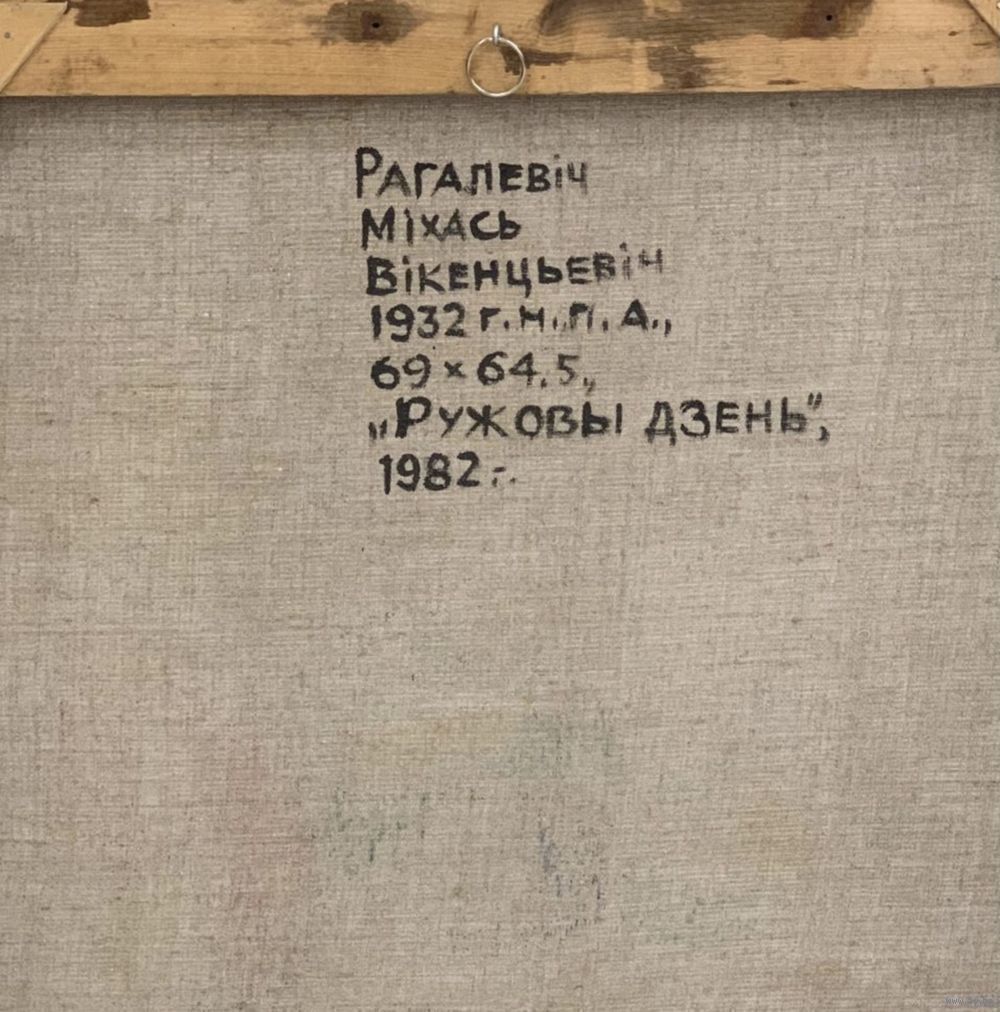 Рагалевіч
Міхась
Вікенцьевіч
1932 г.н., П.А.,
69 × 64.5,,
„Ружовы дзень",
1982 г.